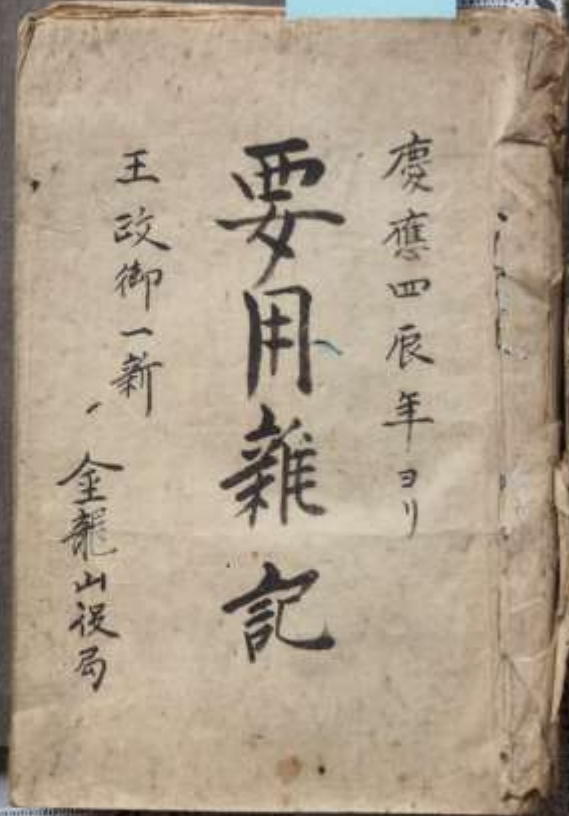 慶應四辰年ヨリ
要用雜記
王政御一新
金龍山役局